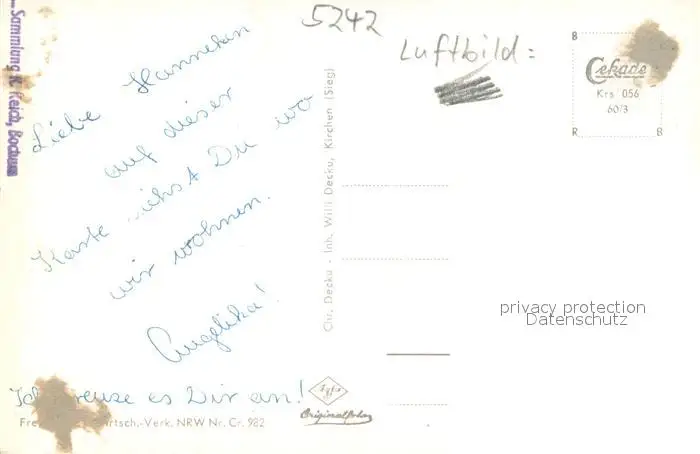 5242
Luftbild:
Sammlung R. Reich, Bochum
Liebe Hannekan
auf dieser
Karte siehst Du wo
wir wohnen.
Angelika!
Ich kreuze es Dir an!
Cramers
Krs 056
60/3
B
R B
Inh. Willi Decku, Kirchen (Sieg)
privacy protection
Datenschutz
Agfa
Originalfoto
-Verk. NRW Nr. Cr. 982